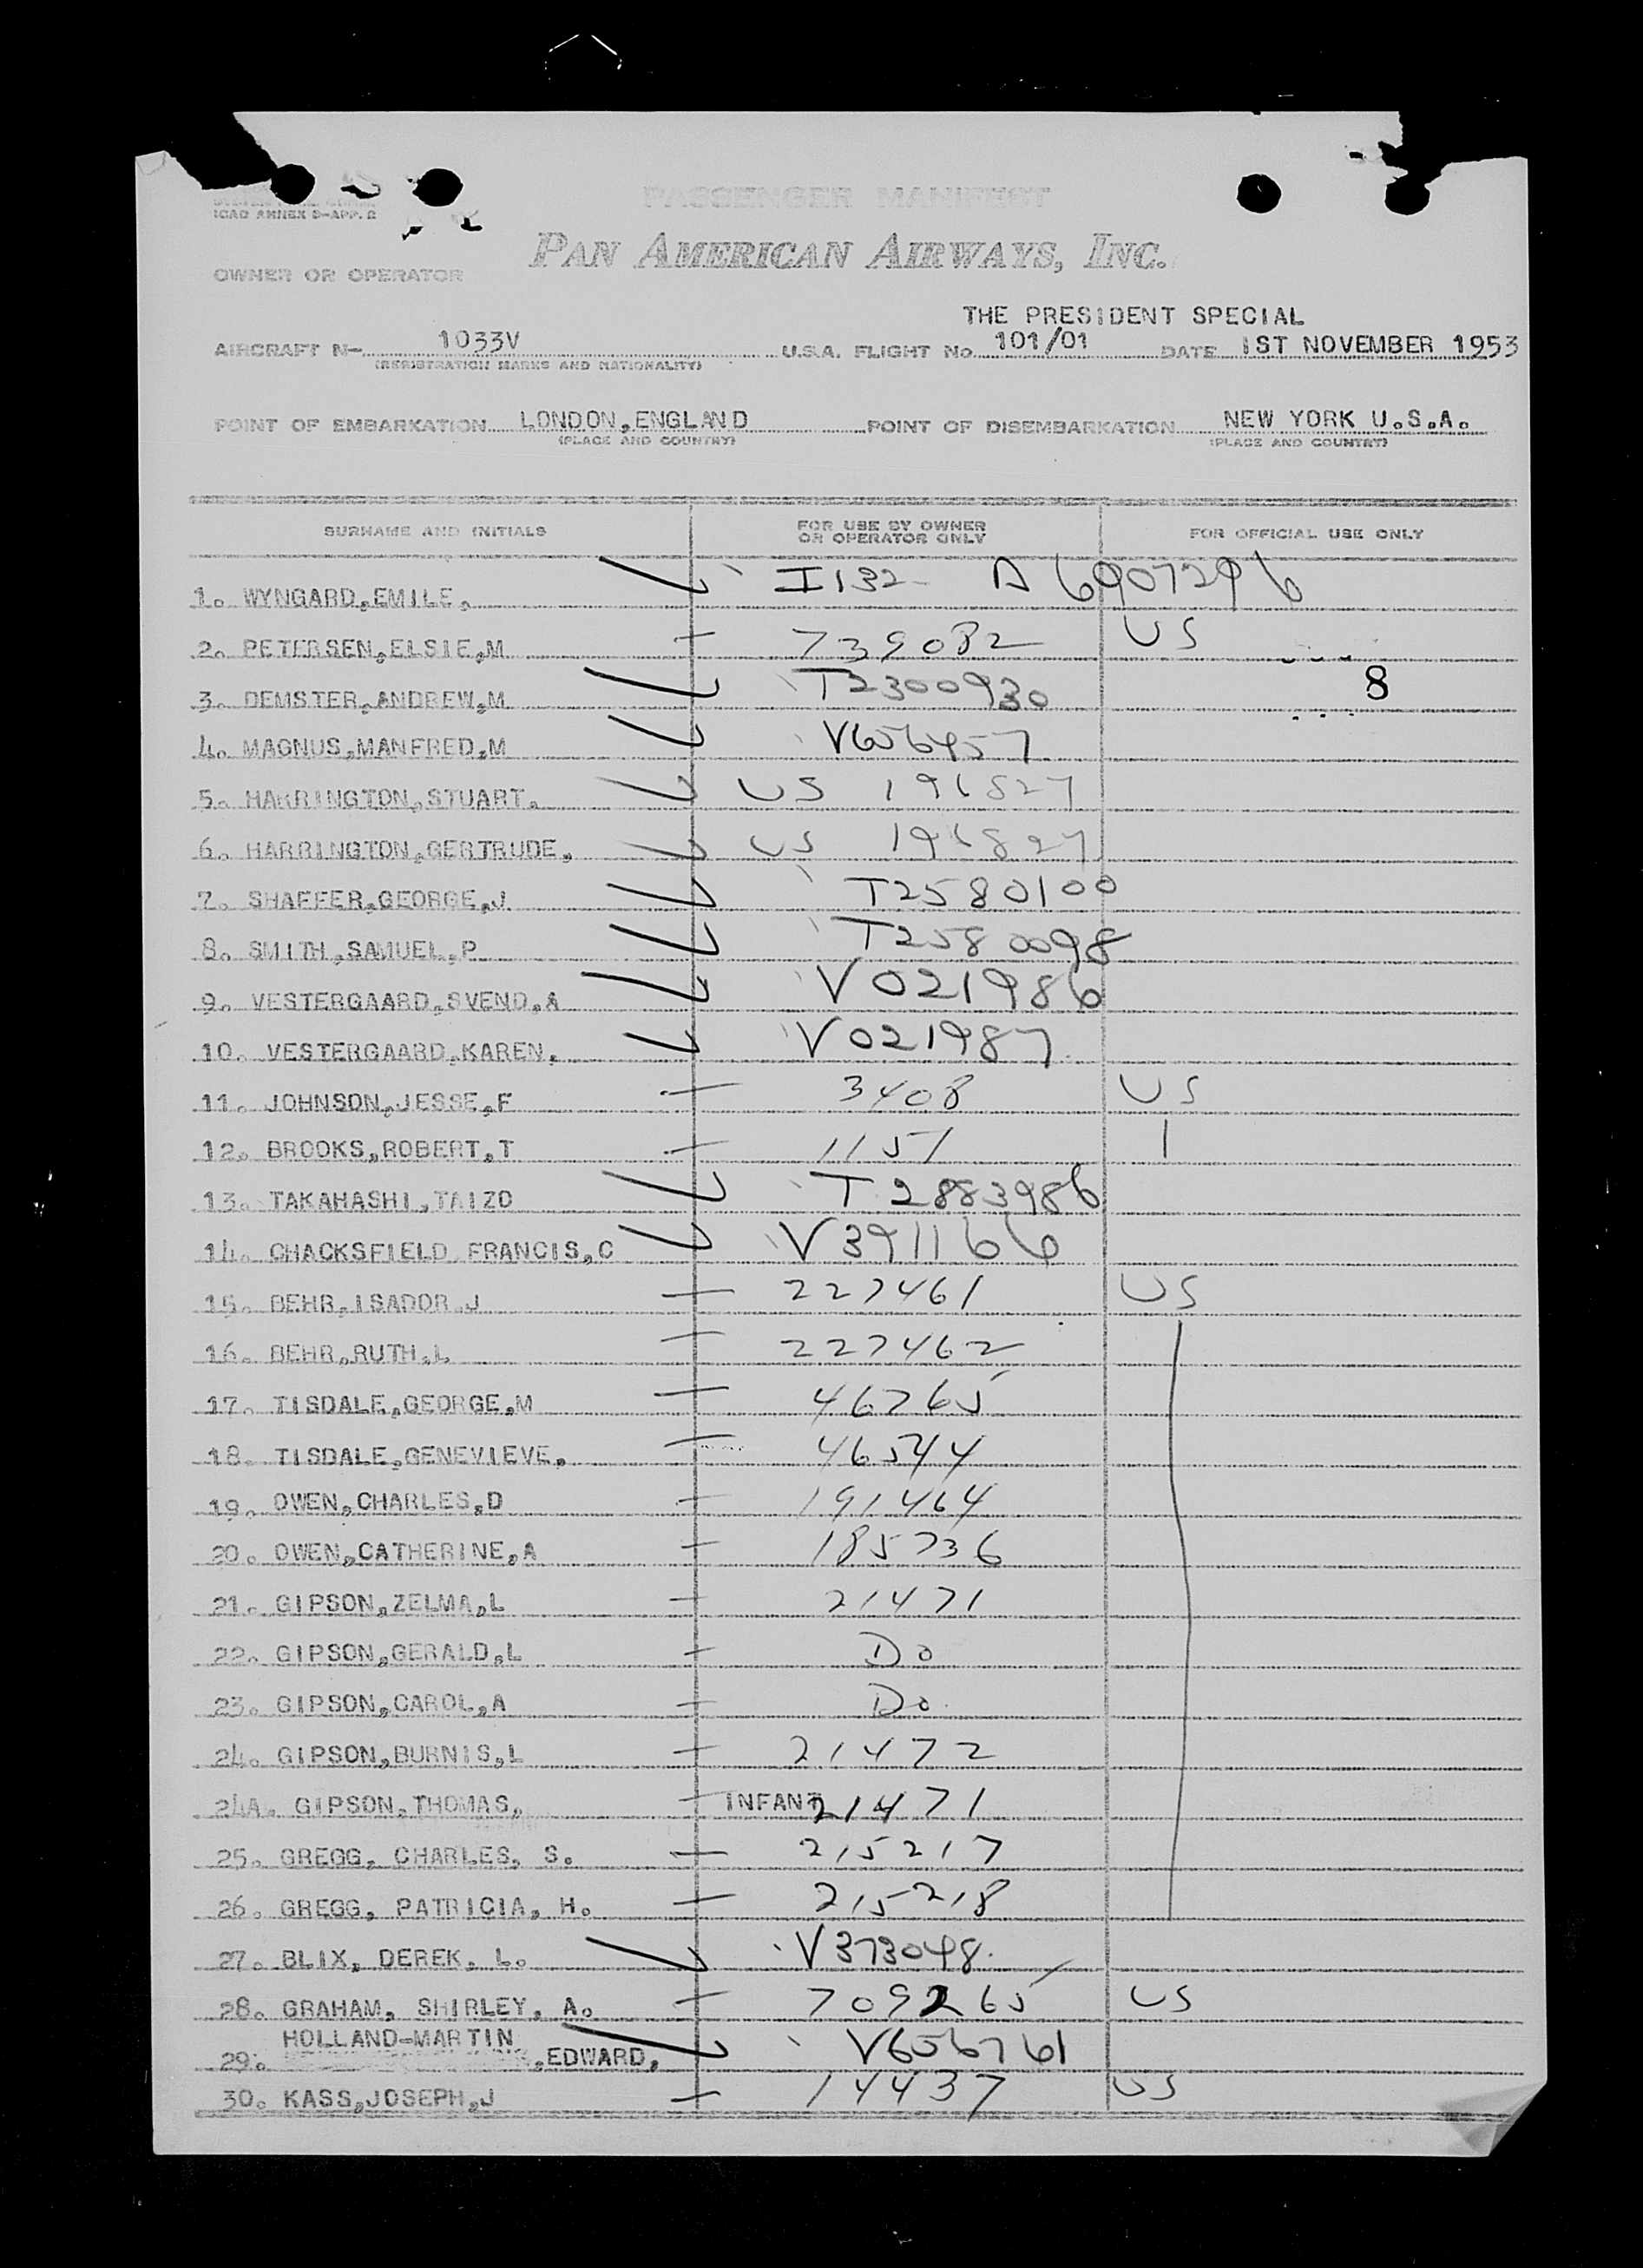 ICAO ANNEX 9-APP. 2
PASSENGER MANIFEST
PAN AMERICAN AIRWAYS, INC.
OWNER OR OPERATOR
THE PRESIDENT SPECIAL
AIRCRAFT N- 1033V U.S.A. FLIGHT No 101/01 DATE 1ST NOVEMBER 1953
(REGISTRATION MARKS AND NATIONALITY)
POINT OF EMBARKATION LONDON, ENGLAND POINT OF DISEMBARKATION NEW YORK U.S.A.
(PLACE AND COUNTRY) (PLACE AND COUNTRY)
SURNAME AND INITIALS FOR USE BY OWNER OR OPERATOR ONLY FOR OFFICIAL USE ONLY
1. WYNGARD,EMILE, I132 A6907296
2. PETERSEN,ELSIE,M — 739082 US
3. DEMSTER,ANDREW,M T2300930 8
4. MAGNUS,MANFRED,M V656457
5. HARRINGTON,STUART. US 196827
6. HARRINGTON,GERTRUDE, US 196827
7. SHAFFER,GEORGE,J T2580100
8. SMITH,SAMUEL,P T2580098
9. VESTERGAARD,SVEND,A V021986
10. VESTERGAARD,KAREN, V021987
11. JOHNSON,JESSE,F — 3408 US
12. BROOKS,ROBERT,T — 1151
13. TAKAHASHI,TAIZO T2883986
14. CHACKSFIELD FRANCIS,C V391166
15. BEHR,ISADOR J — 227461 US
16. BEHR,RUTH,L — 227462
17. TISDALE,GEORGE,M — 46765
18. TISDALE,GENEVIEVE, — 46544
19. OWEN,CHARLES,D — 191464
20. OWEN,CATHERINE,A — 185736
21. GIPSON,ZELMA,L — 21471
22. GIPSON,GERALD,L — Do
23. GIPSON,CAROL,A — Do.
24. GIPSON,BURNIS,L — 21472
24A. GIPSON,THOMAS, — INFANT 21471
25. GREGG, CHARLES, S. — 215217
26. GREGG, PATRICIA, H. — 215218
27. BLIX, DEREK, L. V373048.
28. GRAHAM, SHIRLEY, A. — 709265 US
HOLLAND-MARTIN
29. ,EDWARD, V656761
30. KASS,JOSEPH,J — 14437 US